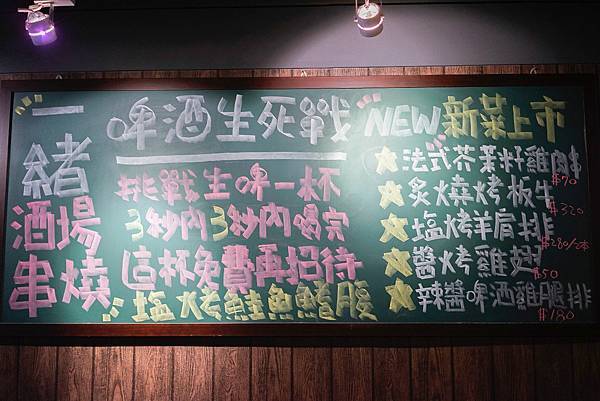 一緒
酒場
串燒
啤酒生死戰
挑戰生啤一杯
3秒內3秒內喝完
這杯免費再招待
塩烤鮭魚鰭腹
NEW 新菜上市
法式芥茉籽雞串
$70
炙燒烤板牛
$320
塩烤羊肩排
$280/2本
醬烤雞翅
$50
辣醬啤酒雞腿排
$180